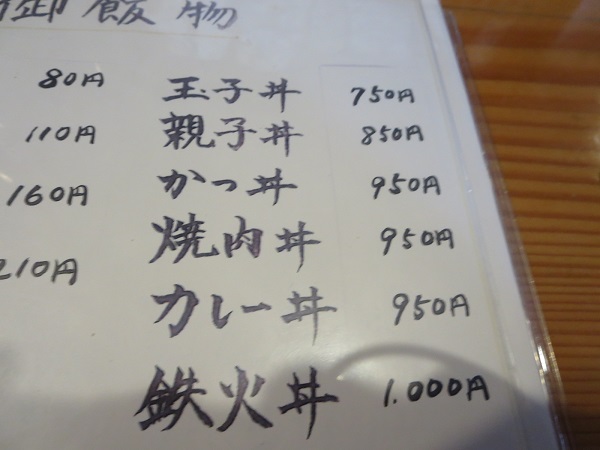 御飯物
80円
玉子丼 750円
110円
親子丼 850円
160円
かつ丼 950円
210円
焼肉丼 950円
カレー丼 950円
鉄火丼 1.000円